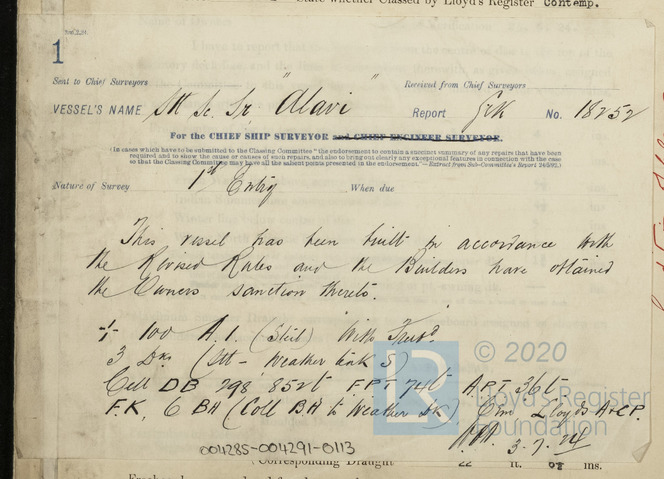 State whether Classed by Lloyd's Register Contemp.
1
Sent to Chief Surveyors
Received from Chief Surveyors
VESSEL'S NAME Stl Sc. Sr "Alavi" Report Gfk No. 18252
For the CHIEF SHIP SURVEYOR and CHIEF ENGINEER SURVEYOR.
(In cases which have to be submitted to the Classing Committee "the endorsement to contain a succinct summary of any repairs that have been
required and to show the cause or causes of such repairs, and also to bring out clearly any exceptional features in connection with the case
so that the Classing Committee may have all the salient points presented in the endorsement."—Extract from Sub-Committee's Report 24/5/92.)
Nature of Survey 1st Entry When due
This vessel has been built in accordance with
the Revised Rules and the Builders have obtained
the Owners sanction thereto.
100 A.1. (Steel) With Freebd
3 Dks (Stl - Weather
Cell DB 298' 852t F.P.T 74t A.P.T 36t
F.K, 6 BH (Coll BH to Weather Dk) Lloyds A & C.P.
3.7.24
004285-004291-0113
© 2020
Lloyd's Register
Foundation
Corresponding Draught 22 ft. ins.